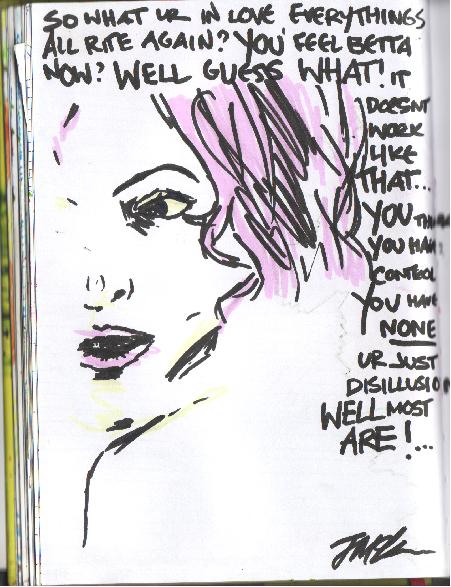 SO WHAT UR IN LOVE EVERYTHINGS
ALL RITE AGAIN? YOU FEEL BETTA
NOW? WELL GUESS WHAT! IT
DOESNT
WORK
LIKE
THAT...
YOU
YOU HAVE
CONTROL
YOU HAVE
NONE
UR JUST
DISILLUSION
WELL MOST
ARE!...